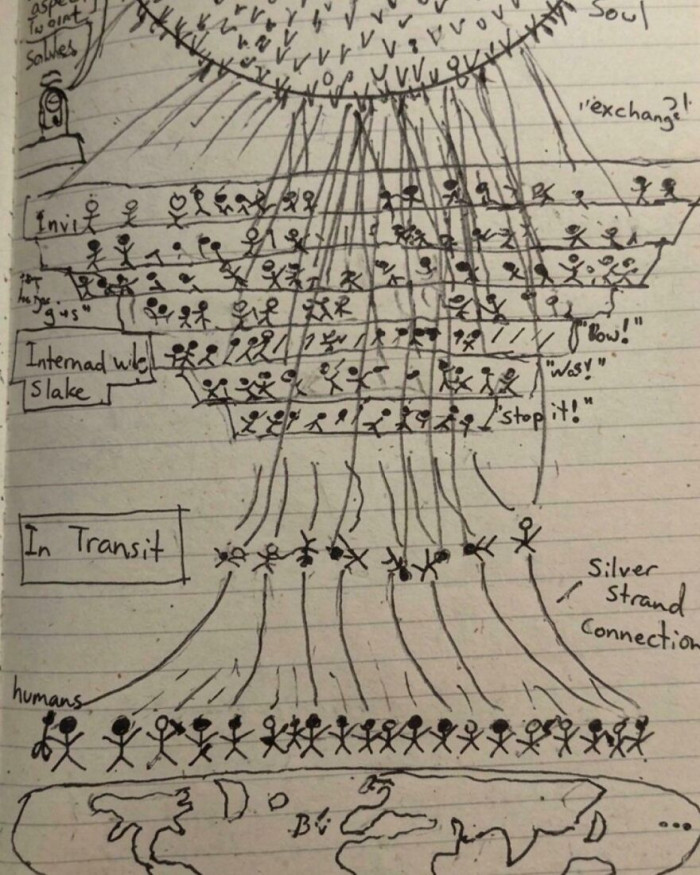 aspect
in art.
Solves
Soul
"exchange?!
Invi
gus"
"Now!"
Internad wle
Slake
"Was!"
"stop it!"
In Transit
Silver
Strand
Connection
humans